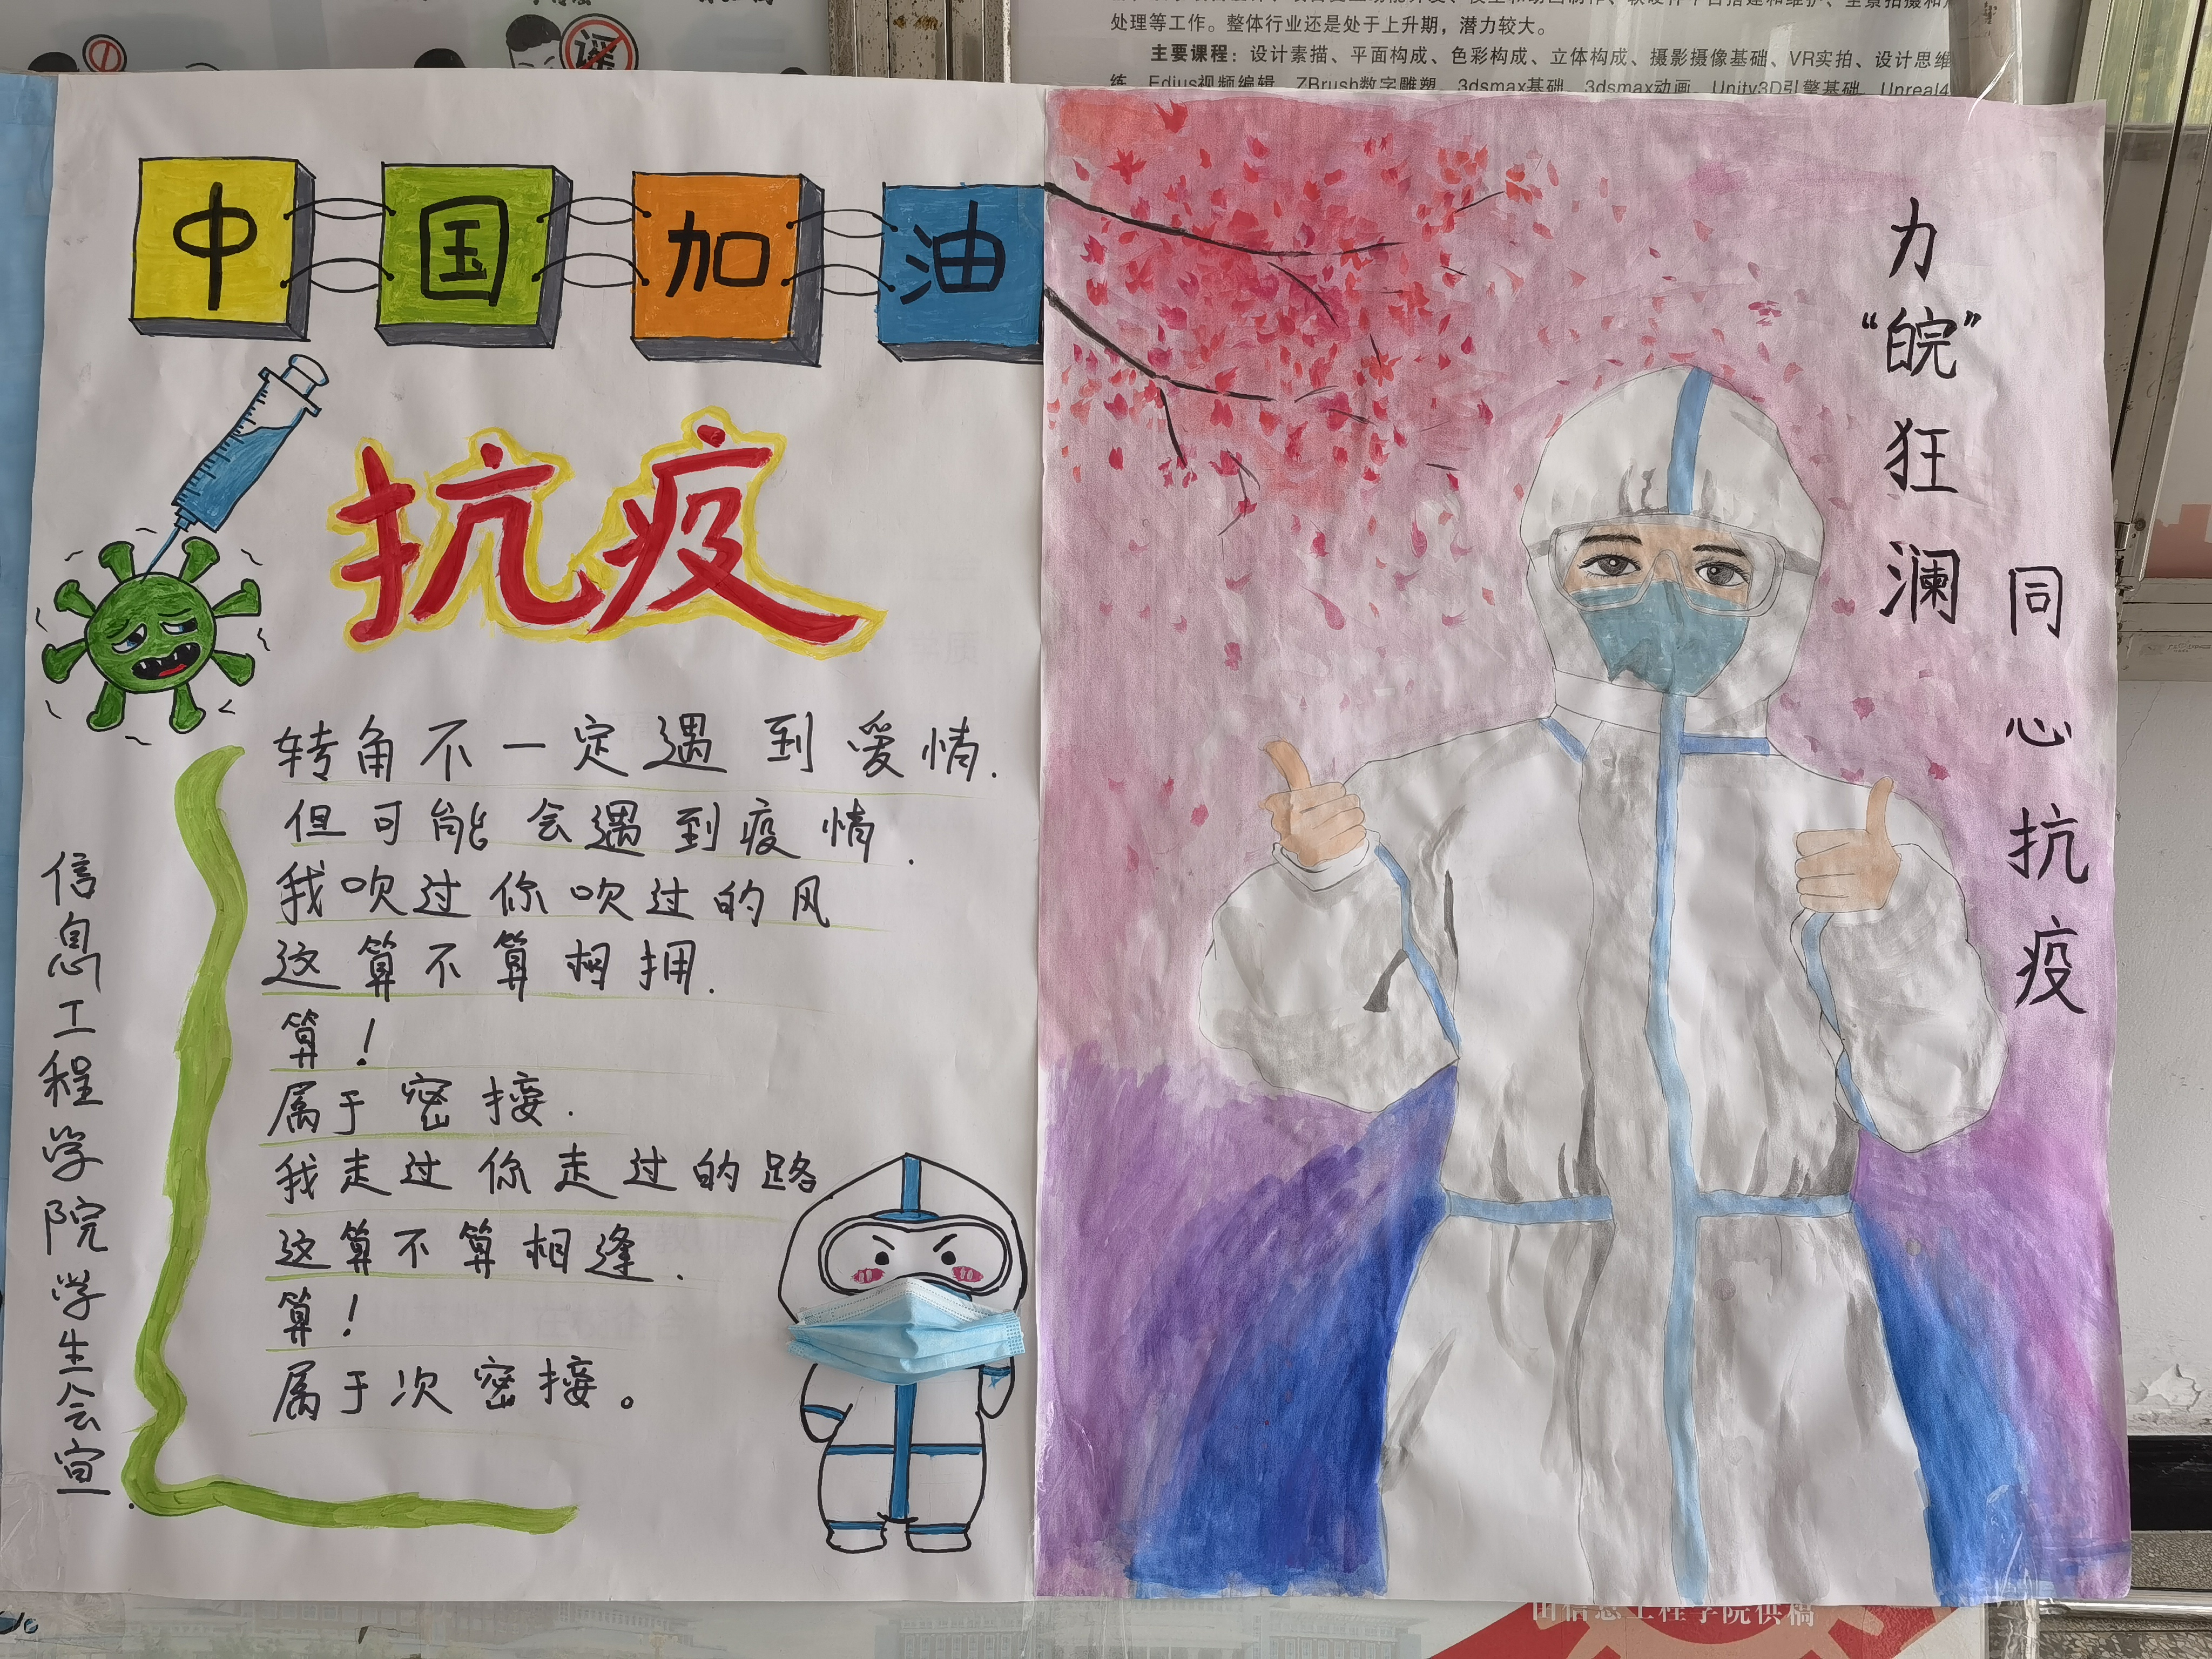 谣
处理等工作。整体行业还是处于上升期，潜力较大。
主要课程：设计素描、平面构成、色彩构成、立体构成、摄影摄像基础、VR实拍、设计思维
练、Edius视频编辑、ZBrush数字雕塑、3dsmax基础、3dsmax动画、Unity3D引擎基础、Unreal4
中国加油
抗疫
转角不一定遇到爱情.
但可能会遇到疫情.
我吹过你吹过的风
这算不算相拥.
算！
属于密接.
我走过你走过的路
这算不算相逢.
算！
属于次密接。
信息工程学院学生会宣.
力“皖”狂澜
同心抗疫
由信息工程学院供稿